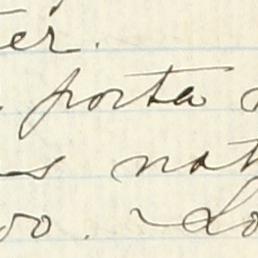 ter.
porta
s nat
oo. Lo